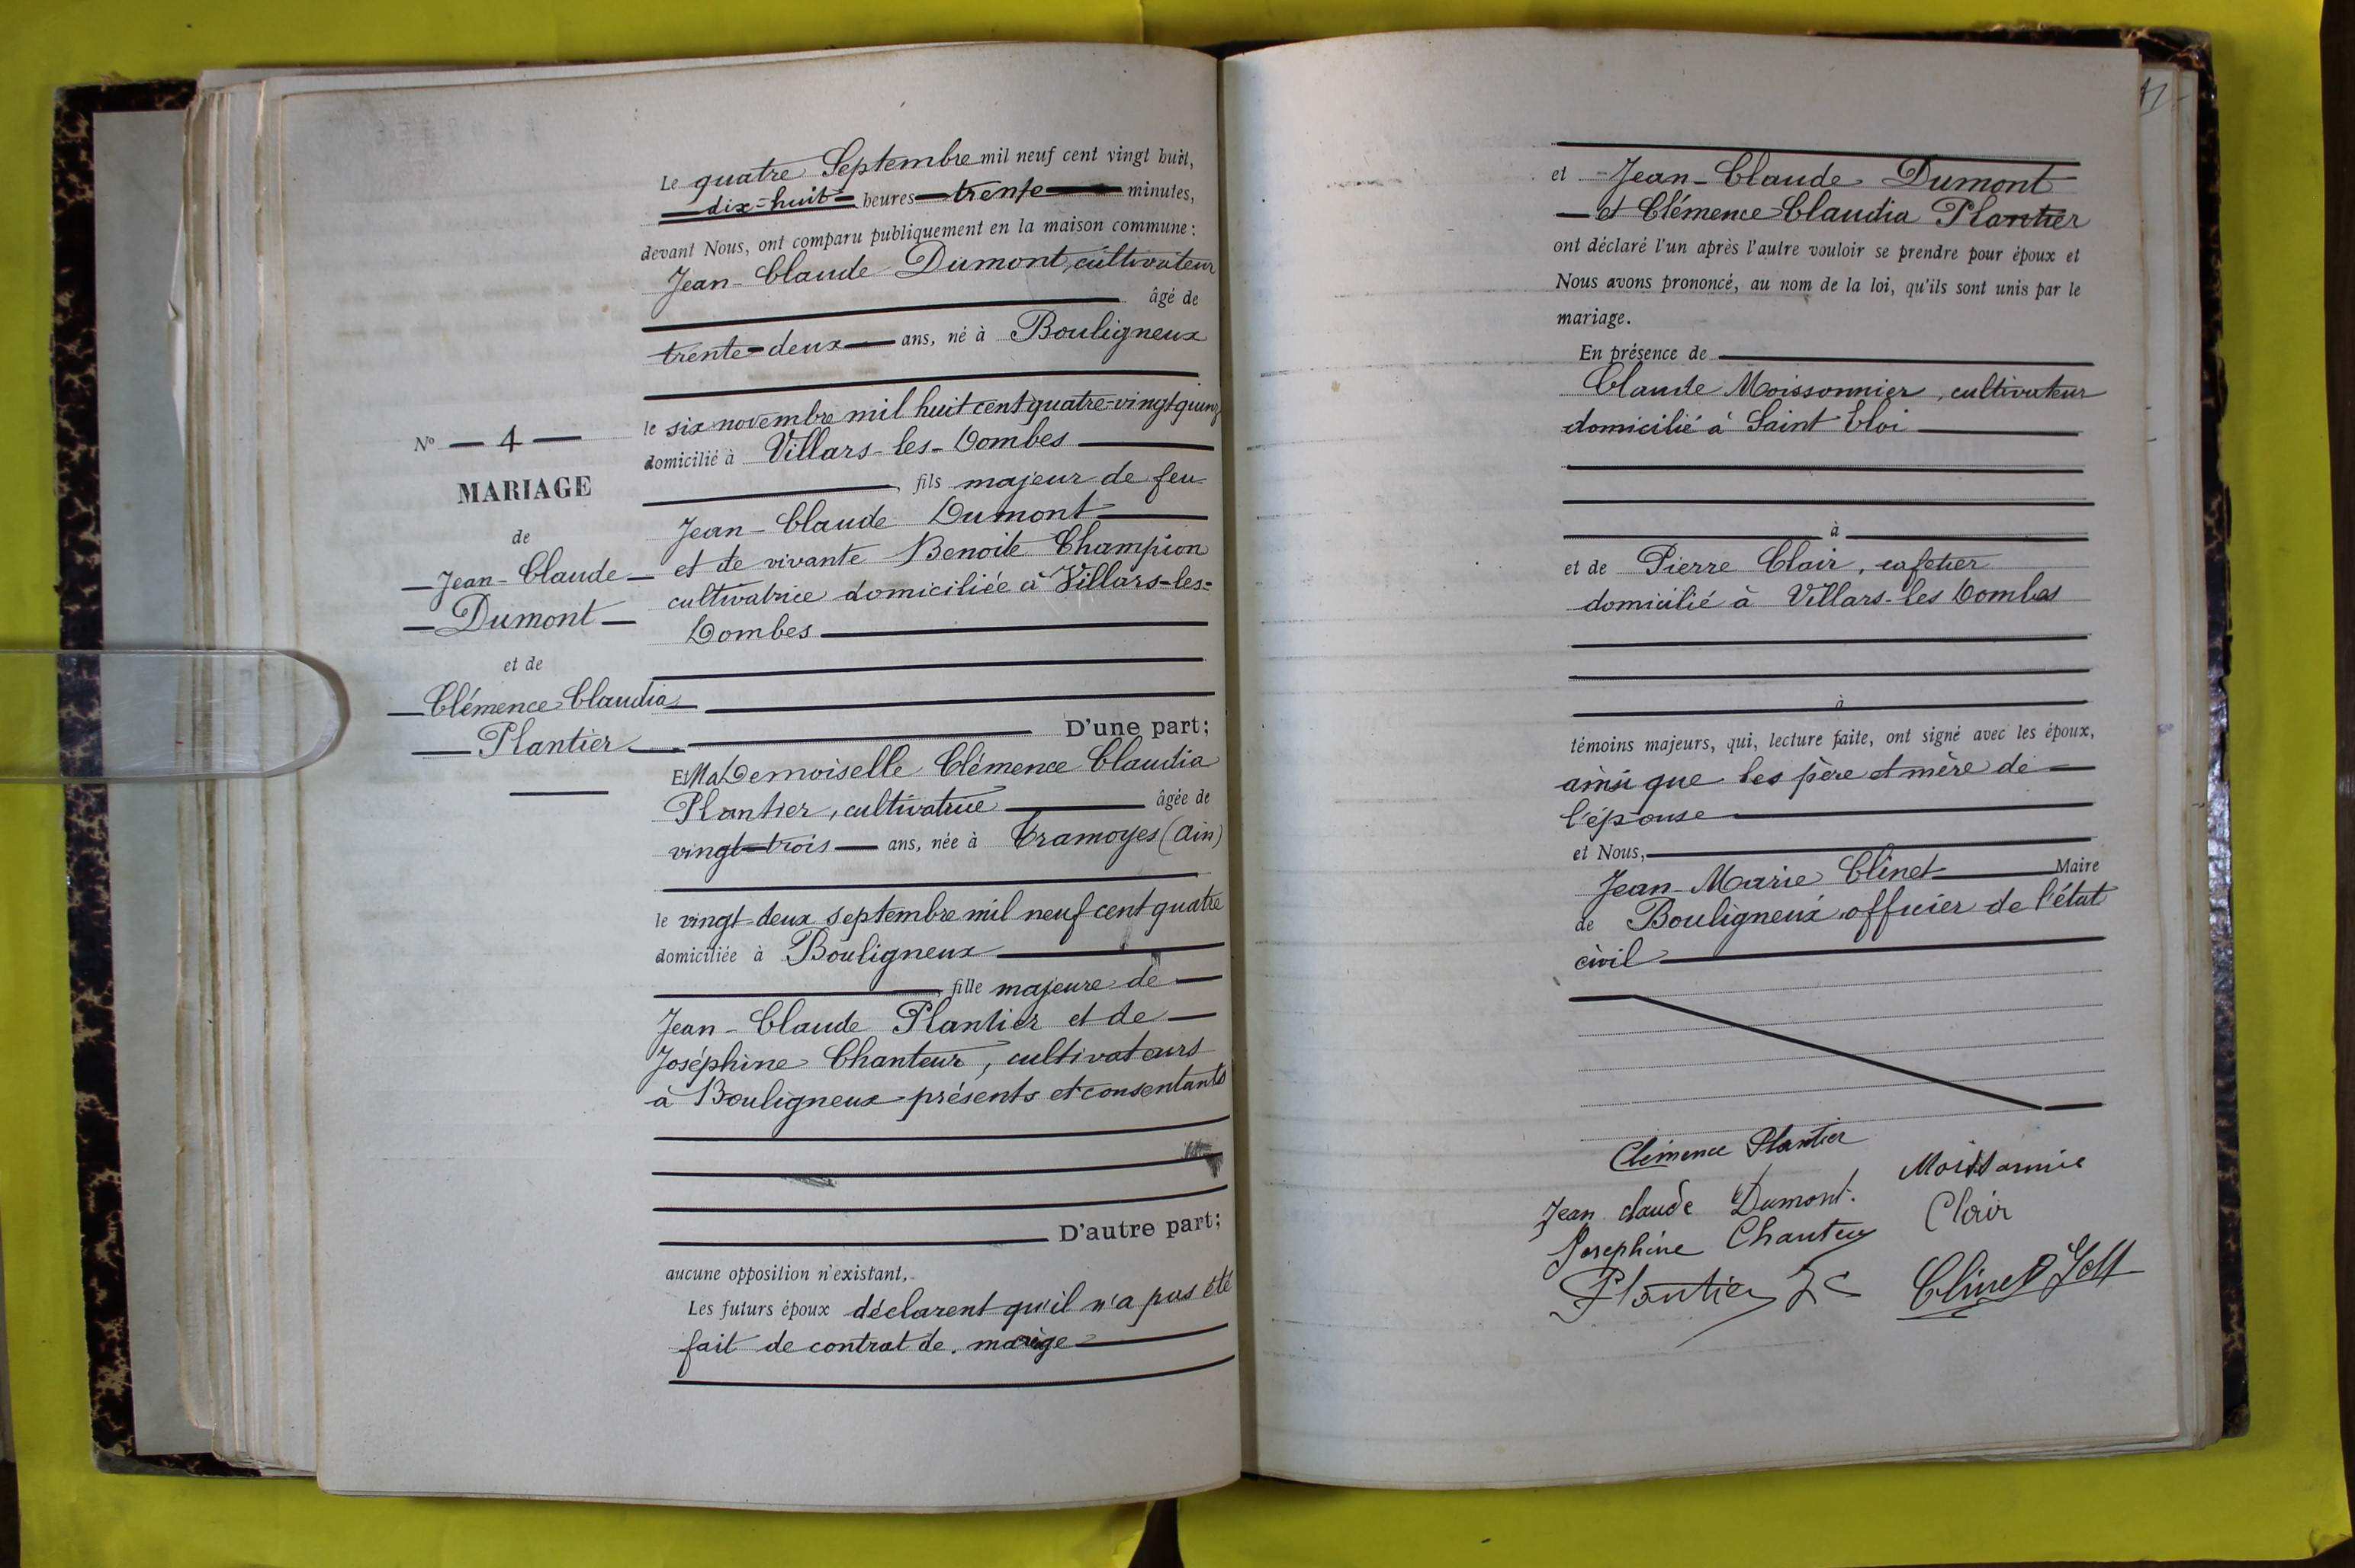 Le quatre Septembre mil neuf cent vingt huit,
dix-huit heures trente minutes,
devant Nous, ont comparu publiquement en la maison commune :
Jean-Claude Dumont, cultivateur
âgé de
trente-deux ans, né à Bouligneux
le six novembre mil huit cent quatre-vingt quinz
domicilié à Villars-les-Dombes
fils majeur de feu
Jean-Claude Dumont
et de vivante Benoite Champion
cultivatrice domiciliée à Villars-les-
Dombes
D'une part;
Et MaDemoiselle Clémence Claudia
Plantier, cultivatrice âgée de
vingt-trois ans, née à Tramoyes (Ain)
le vingt-deux septembre mil neuf cent quatre
domiciliée à Bouligneux
fille majeure de
Jean-Claude Plantier et de
Joséphine Chanteur, cultivateurs
à Bouligneux présents et consentants
D'autre part;
aucune opposition n'existant,
Les futurs époux déclarent qu'il n'a pas été
fait de contrat de mariage
N° 4
MARIAGE
de
Jean-Claude
Dumont
et de
Clémence Claudia
Plantier
et Jean-Claude Dumont
et Clémence Claudia Plantier
ont déclaré l'un après l'autre vouloir se prendre pour époux et
Nous avons prononcé, au nom de la loi, qu'ils sont unis par le
mariage.
En présence de
Claude Moissonnier, cultivateur
domicilié à Saint Eloi
à
et de Pierre Clair, cafetier
domicilié à Villars-les Dombes
à
témoins majeurs, qui, lecture faite, ont signé avec les époux,
ainsi que les père et mère de
l'épouse
et Nous,
Jean-Marie Clinet Maire
de Bouligneux officier de l'état
civil
Clémence Plantier
Jean claude Dumont.
Josephine Chanteur
Plantier JC
Moissonnie
Clair
Clinet JM